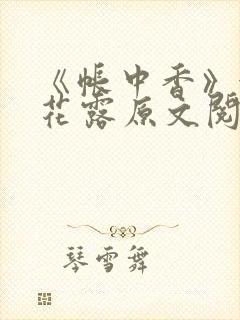 《帐中香》
花露原文阅
琴雪舞